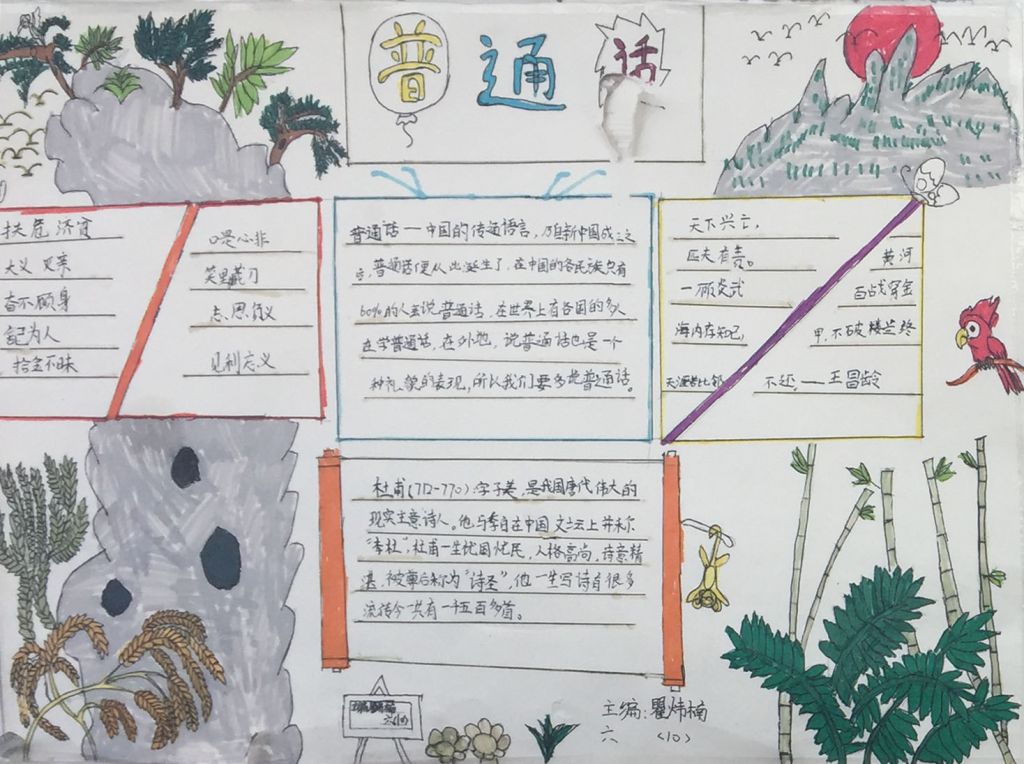 普通话
扶危济贫
大义灭亲
奋不顾身
記为人
拾金不昧
口是心非
笑里藏刀
忘恩负义
见利忘义
普通话——中国的传通语言,乃自新中国成立之
后,普通话便从此诞生了,在中国的各民族只有
60%的人去说普通话,在世界上有各国的多人
在学普通话,在外地,说普通话也是一个
种礼貌的表现,所以我们要多是普通话。
天下兴亡,
匹夫有责。
一顾炎武
海内存知己,
天涯若比邻
黄河
百战穿金
甲,不破楼兰终
不还,——王昌龄
杜甫(712-770):字子美,是我国唐代伟大的
现实主意诗人。他与李白在中国文云上并称
“李杜”,杜甫一生忧国忧民,人格高尚,诗意精
湛,被尊后称为“诗圣”,他一生写诗有很多
流传今共有一千五百多首。
主编:瞿炜楠
六 (10)